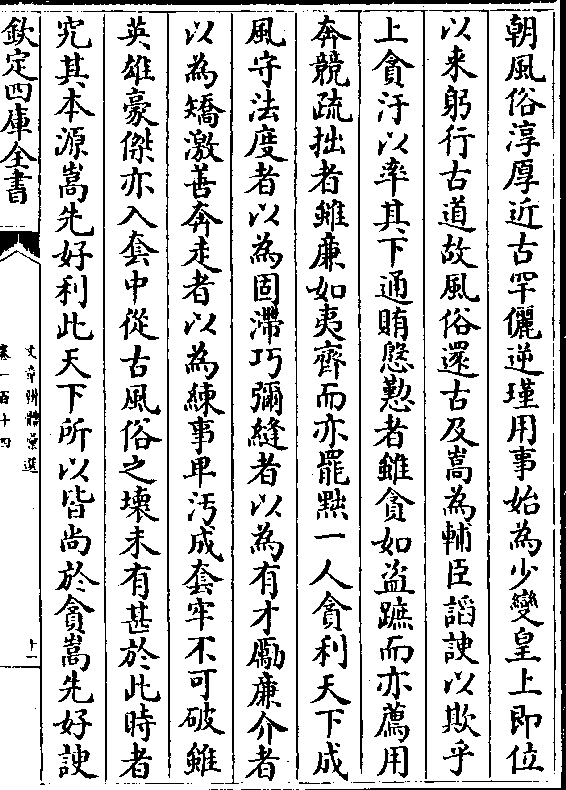 朝風俗淳厚近古罕儷逆瑾用事始為少變皇上即位
以來躬行古道故風俗還古及嵩為輔臣謟諛以欺乎
上貪汙以率其下通賄慇懃者雖貪如盗蹠而亦薦用
奔競疏拙者雖廉如夷齊而亦罷黜一人貪利天下成
風守法度者以為固滯巧彌縫者以為有才勵廉介者
以為矯激善奔走者以為練事卑汚成套牢不可破雖
英雄豪傑亦入套中從古風俗之壊未有甚於此時者
究其本源嵩先好利此天下所以皆尚於貪嵩先好諛
欽定四庫全書
文章辨體彚選
卷一百十四
十一